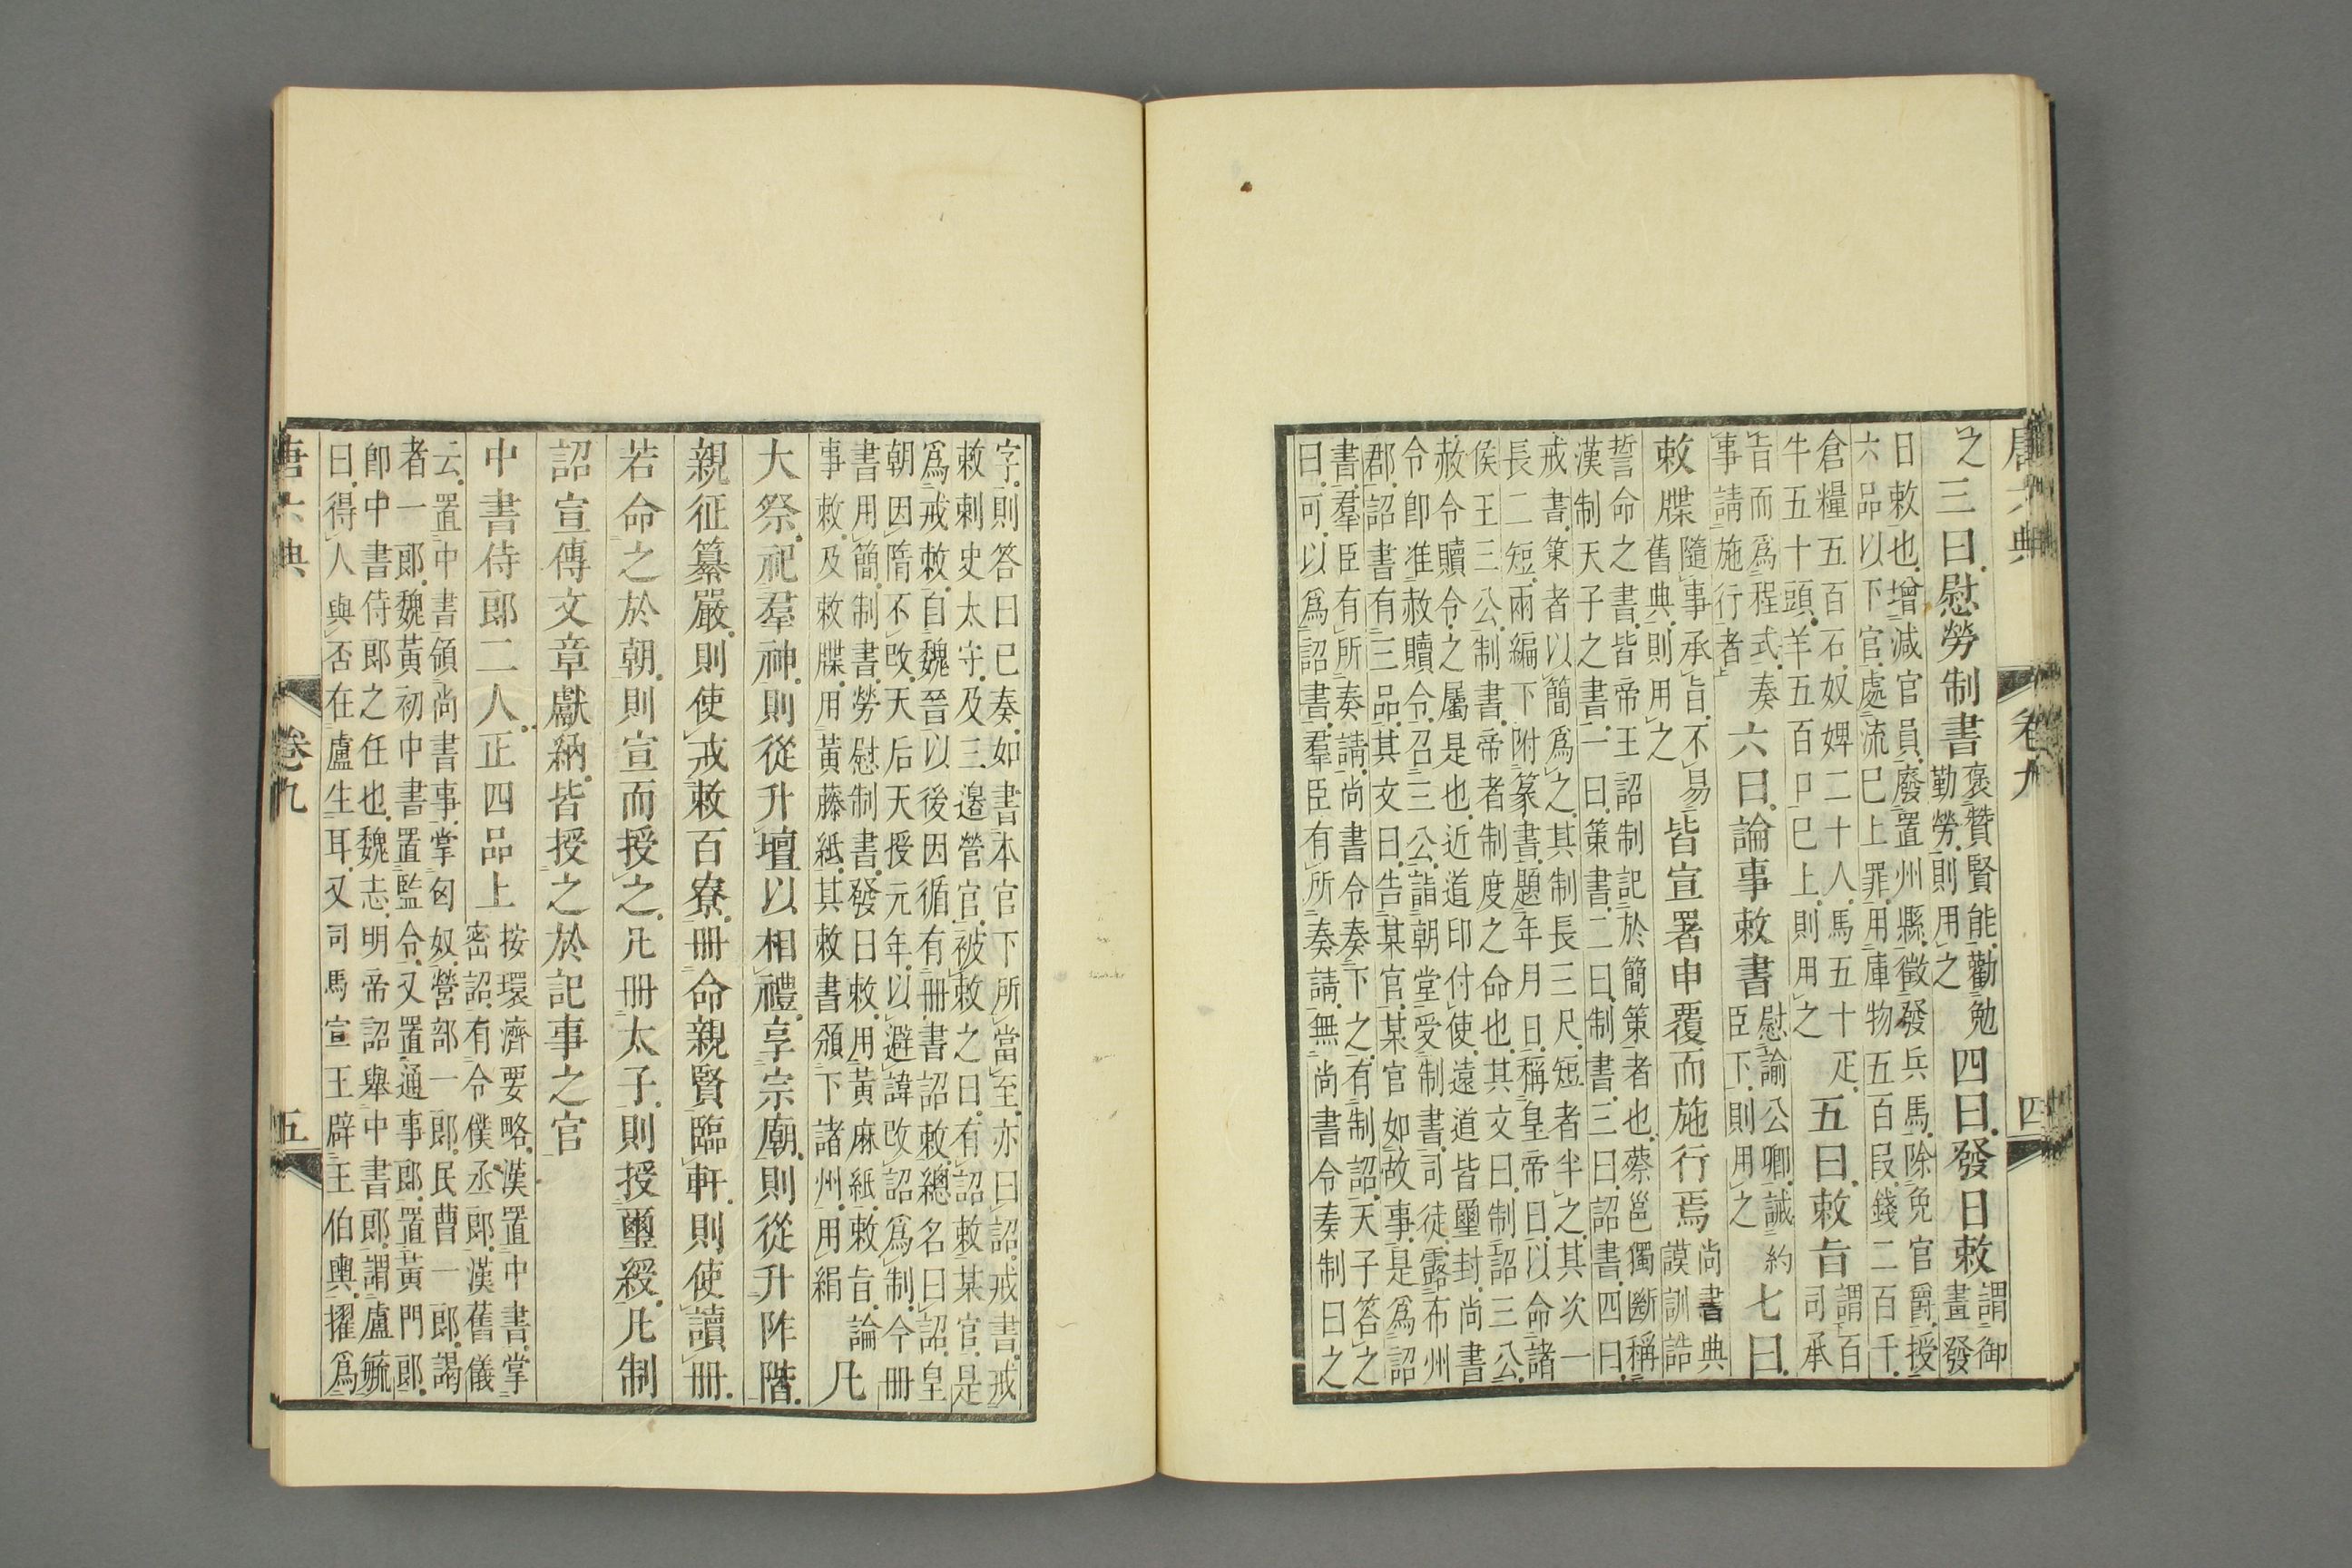 唐六典　卷九　四
之三曰慰勞制書
褒贊賢能勸勉
勤勞則用之
四曰發日敕
謂御
畫發
日敕也增減官員廢置州縣徵發兵馬除免官爵授
六品以下官處流已上罪用庫物五百段錢二百千
倉糧五百石奴婢二十人馬五十疋
牛五十頭羊五百口已上則用之
五曰敕旨
謂百
司承
旨而爲程式奏
事請施行者
六曰論事敕書
慰諭公卿誡約
臣下則用之
七曰
敕牒
隨事承旨不易
舊典則用之
皆宣署申覆而施行焉
尚書典
謨訓誥
誓命之書皆帝王詔制記於簡策者也蔡邕獨斷稱
漢制天子之書一曰策書二曰制書三曰詔書四曰
戒書策者以簡爲之其制長三尺短者半之其次一
長二短兩編下附篆書題年月日稱皇帝曰以命諸
侯王三公制書帝者制度之命也其文曰制詔三公
赦令贖令之屬是也近道印付使遠道皆璽封尚書
令卽准赦贖令召三公詣朝堂受制書司徒露布州
郡詔書有三品其文曰告某官某官如故事是爲詔
書羣臣有所奏請尚書令奏下之有制詔天子答之
曰可以爲詔書羣臣有所奏請無尚書令奏制曰之
字則答曰已奏如書本官下所當至亦曰詔戒書戒
敕刺史太守及三邊營官被敕之曰有詔敕某官是
爲戒敕自魏晉以後因循有冊書詔敕總名曰詔皇
朝因隋不改天后天授元年以避諱改詔爲制今冊
書用簡制書勞慰制書發日敕用黃麻紙敕旨論
事敕及敕牒用黃藤紙其敕書頒下諸州用絹
凡
大祭祀羣神則從升壇以相禮享宗廟則從升阼階
親征纂嚴則使戒敕百寮冊命親賢臨軒則使讀冊
若命之於朝則宣而授之凡冊太子則授璽綬凡制
詔宣傳文章獻納皆授之於記事之官
中書侍郎二人正四品上
按環濟要略漢置中書掌
密詔有令僕丞郎漢舊儀
云置中書領尚書事掌匈奴營部一郎民曹一郎謁
者一郎魏黃初中書置監令又置通事郎置黃門郎
卽中書侍郎之任也魏志明帝詔舉中書郎謂盧毓
曰得人與否在盧生耳又司馬宣王辟王伯輿擢爲
唐六典　卷九　五